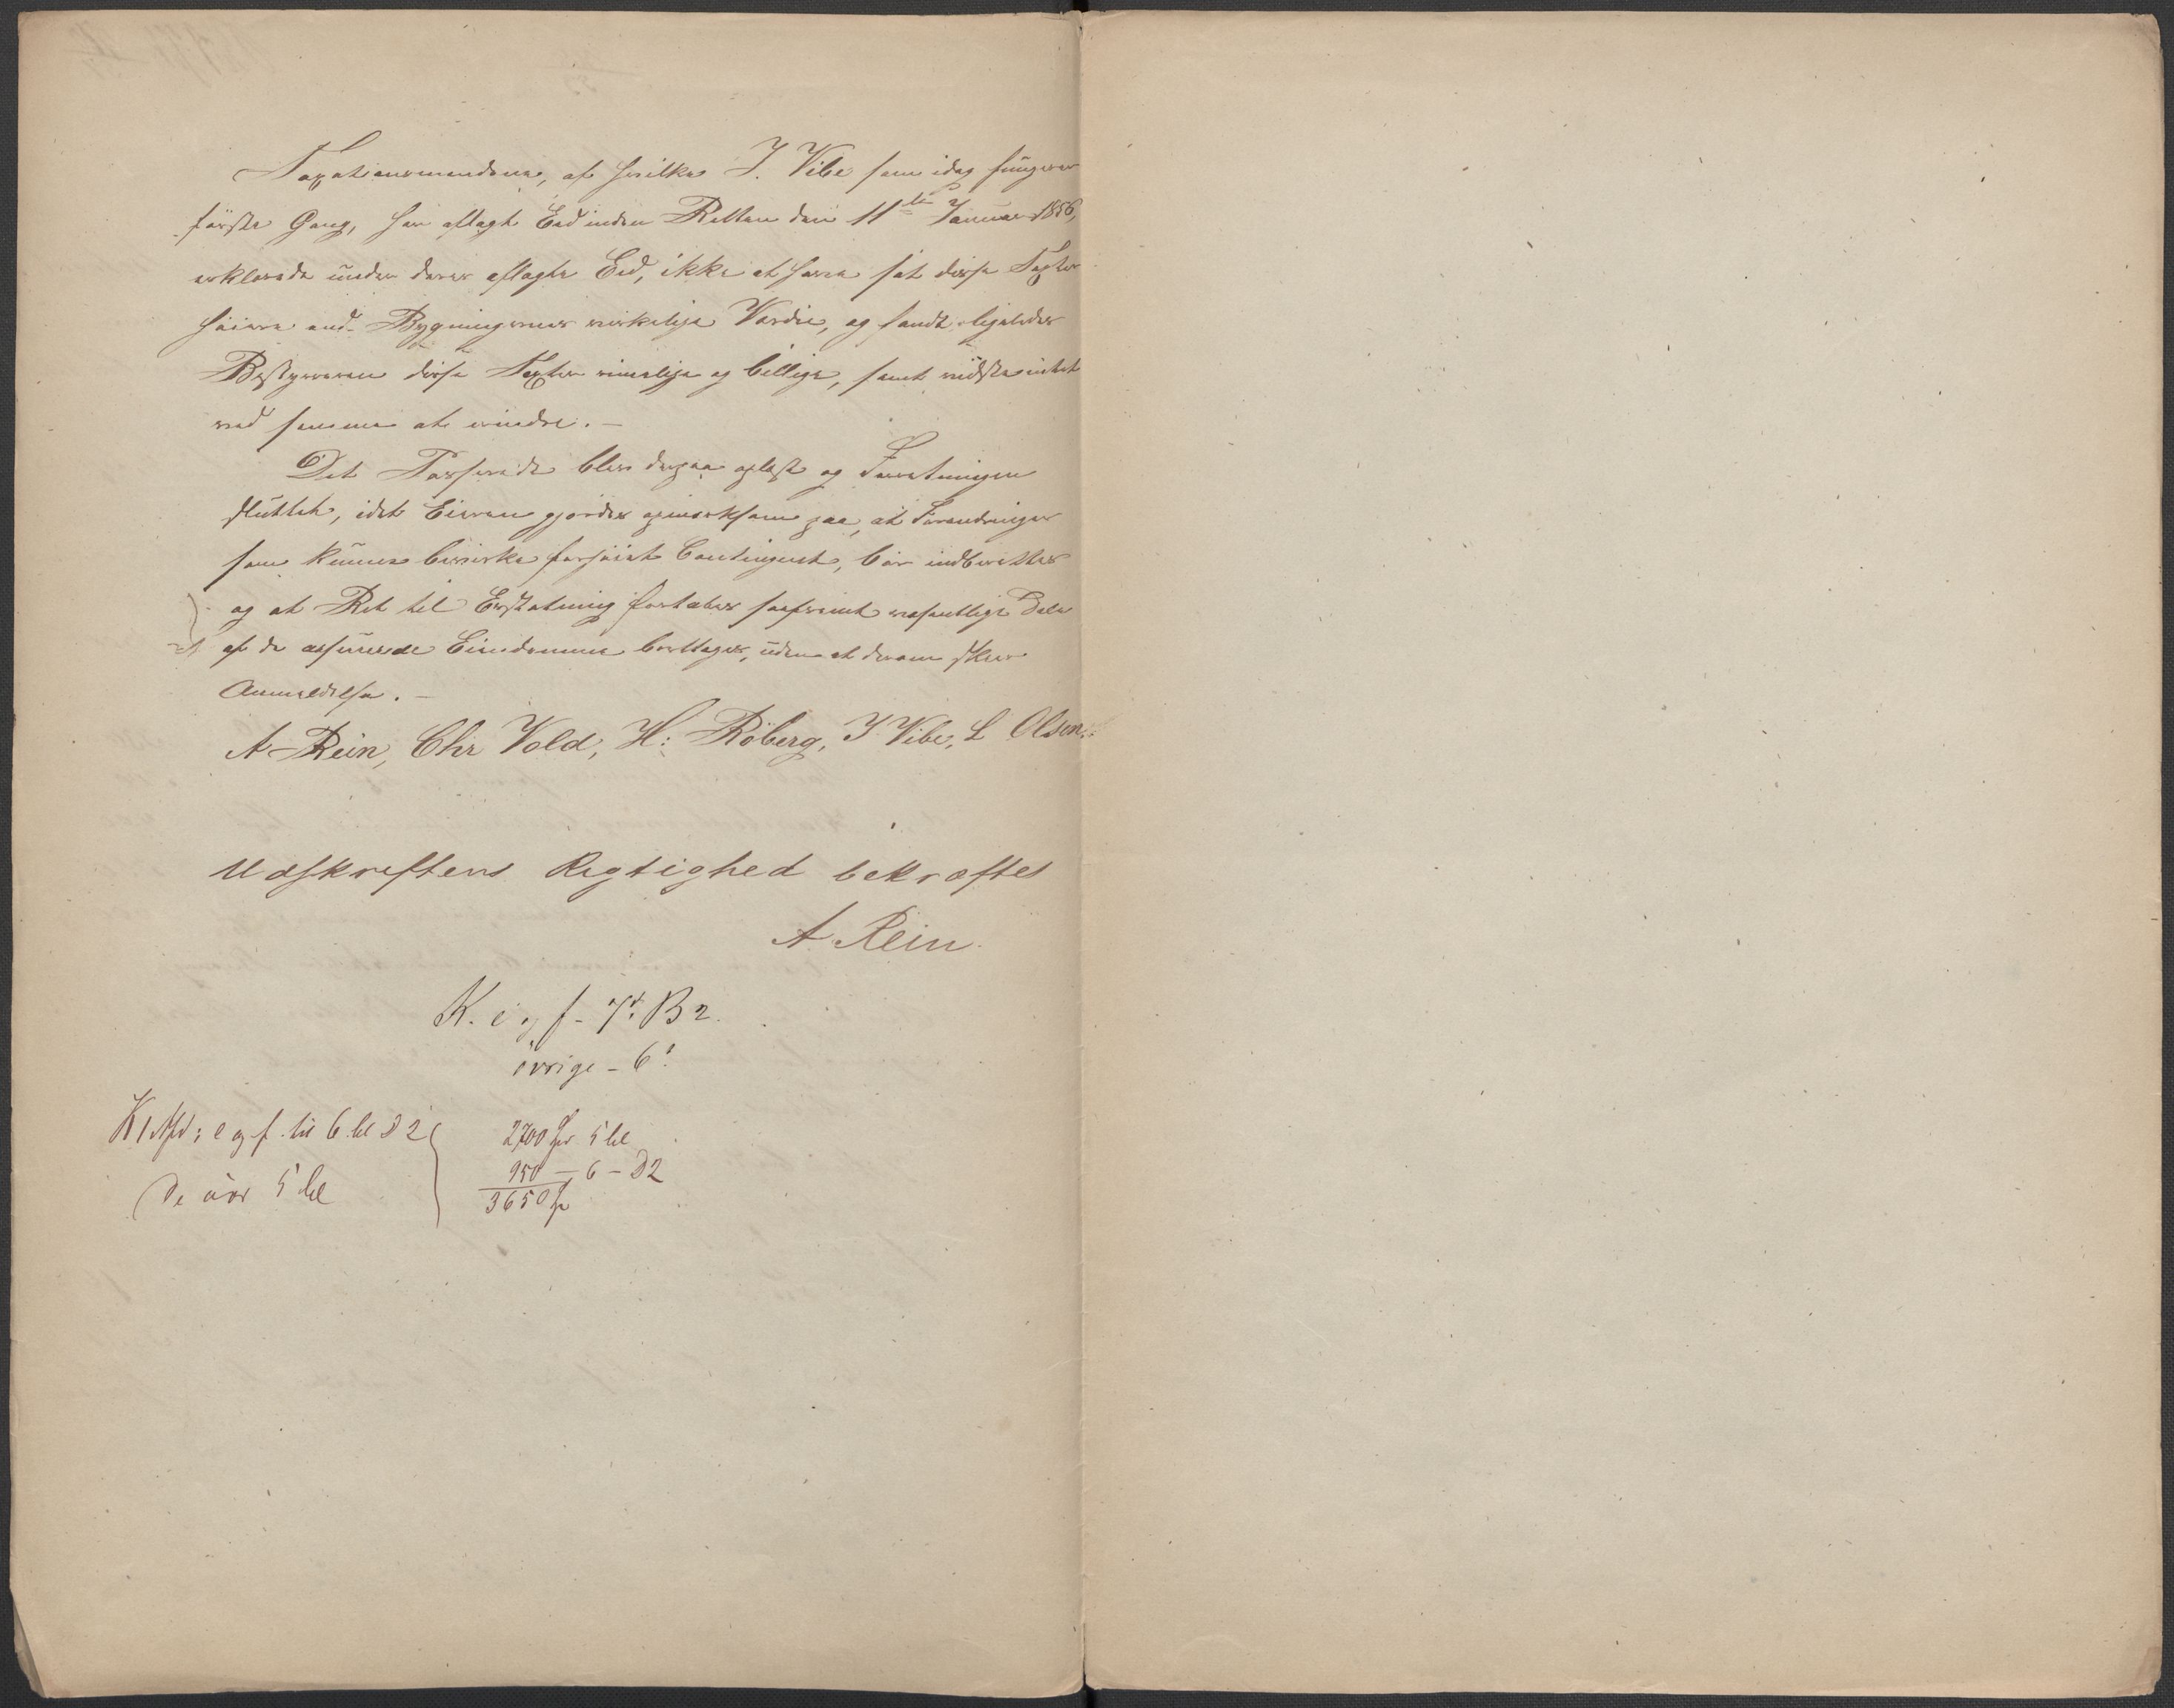 Taxationsmændene, af hvilke J. Vibe som idag fungerer
første Gang, har aflagt Eed inden Retten den 11te Januar 1856,
erklærede under deres aflagte Eed, ikke at have sat disse Taxter
høiere end Bygningernes virkelige Værdie, og fandt ligeledes
Bestyreren disse Taxter rimelige og billige, samt vidste intet
ved samme at erindre. —
Det Passerede blev derpaa oplæst og Forretningen
sluttet, idet Eieren gjordes opmærksom paa, at Forandringer
som kunne bevirke forhøiet Contingent, bør indberettes
og at Ret til Erstatning fortabes saafremt væsentlige Dele
af de assurerede Eiendomme borttages, uden at derom skeer
Anmeldelse. —
A Rein, Chr Vold, H: Röberg, J Vibe, L Olsen.
Udskriftens Rigtighed bekræftes
A. Rein.
K. e og f - 7d. B 2.
øvrige - 6
e og f. til 6 kl D 2
De øvr 5 kl
2700 for 5 kl
950 — 6 — D2
3650